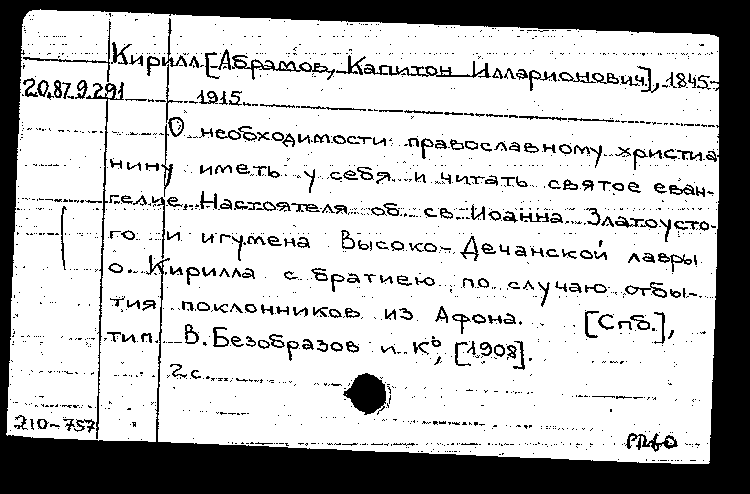 Кирилл [Абрамов, Капитон Илларионович], 1845-
20.87.9.291 1915
О необходимости православному христиа
нину иметь у себя и читать святое еван-
гелие. Настоятеля об. св. Иоанна Златоусто-
го и игумена Высоко-Дечанской лавры
о. Кирилла с братиею, по случаю отбы-
тия поклонников из Афона. [Спб.],
тип. В. Безобразов и К°, [1908].
2 с.
210-757